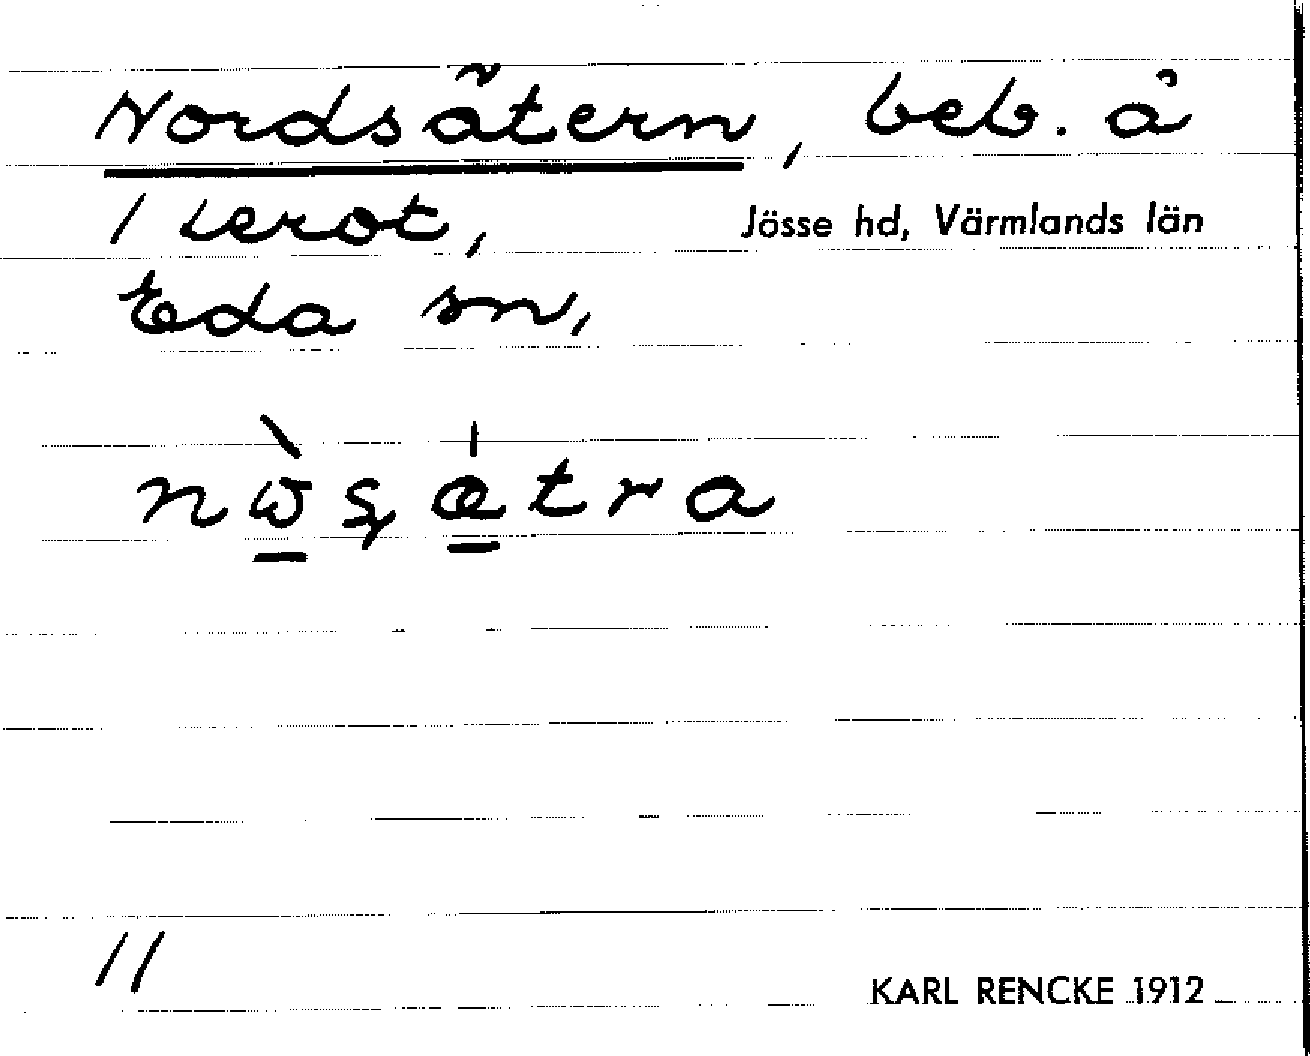 Nordsätern, beb. å
1 Lerot, Jösse hd, Värmlands län
Eda sn,
11
KARL RENCKE 1912